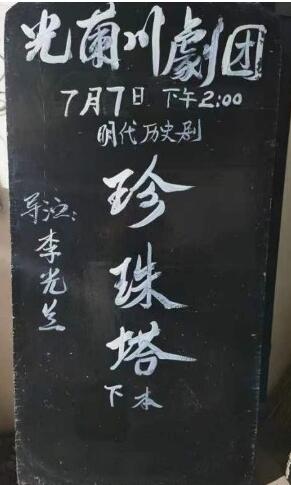 光蘭川劇团
7月7日 下午2:00
明代历史剧
珍珠塔
下本
导泣:
李光兰